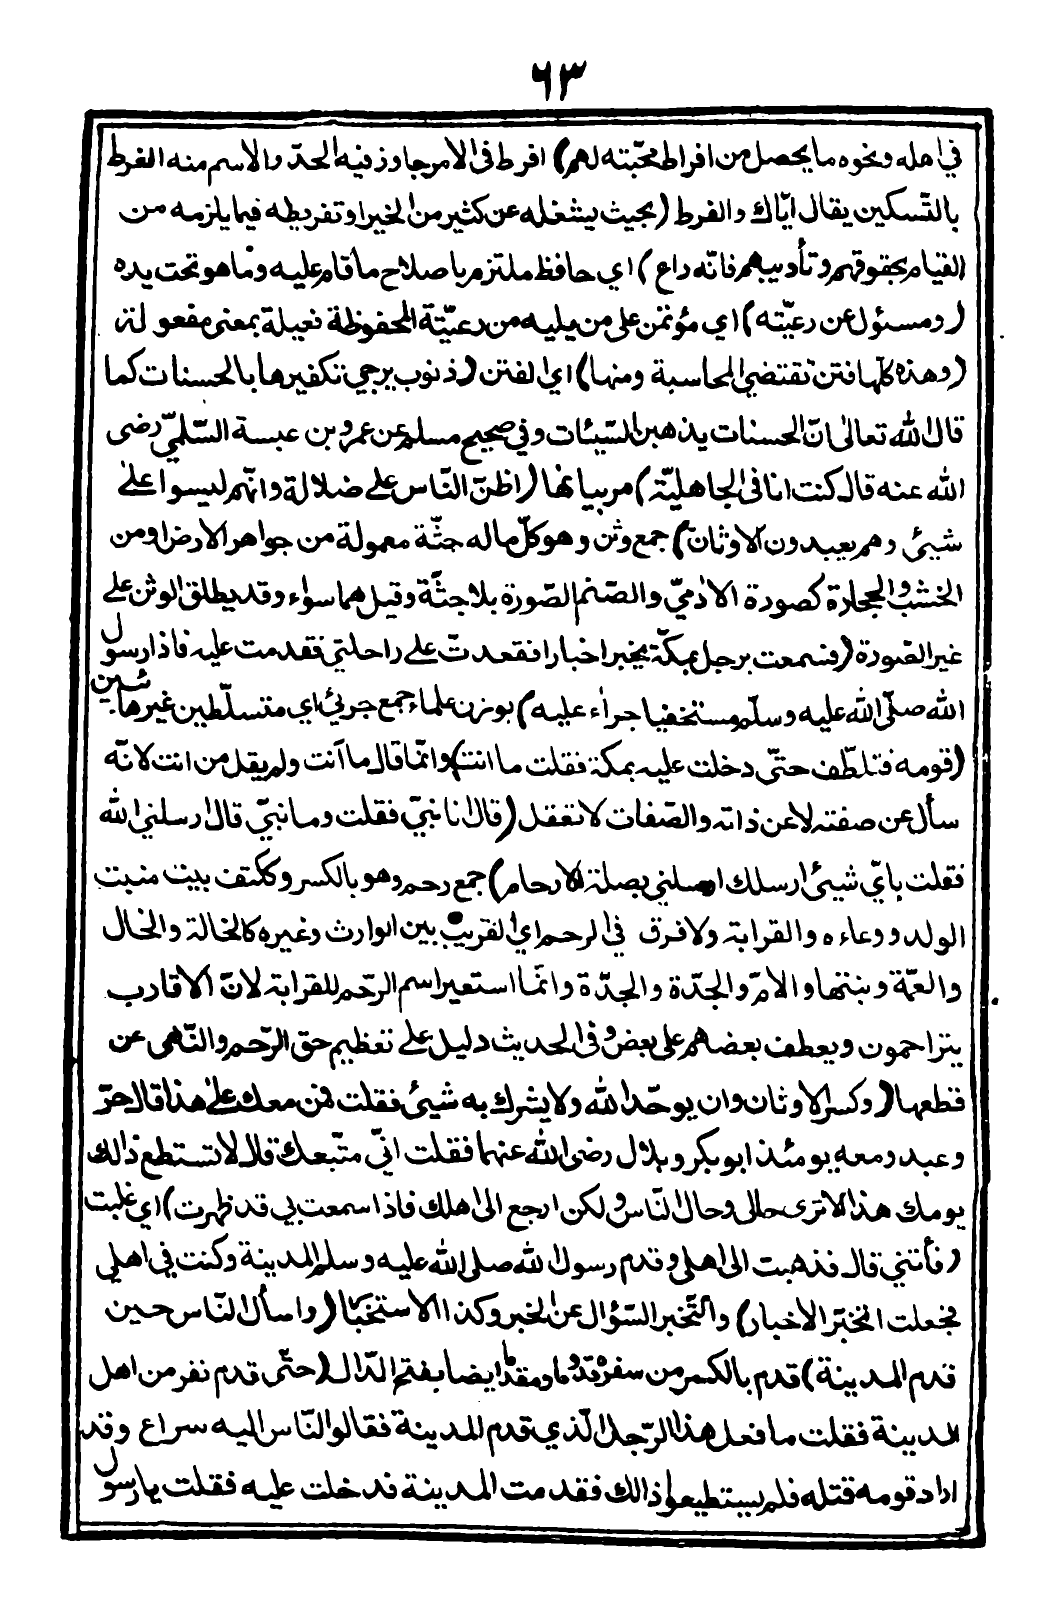 ٦٣
في اهله ونحوه ما يحصل من افراط محبّته لهم) افرط فى الامر جاوز فيه الحدّ والاسم منه الفرط
بالتّسكين يقال ايّاك والفرط (بحيث يشغله عن كثير من الخير او تفريطه فيما يلزمه من
القيام بحقوقهم وتأديبهم فانّه راع) اي حافظ ملتزم باصلاح ما قام عليه وما هو تحت يده
(ومسئول عن رعيّته) اي مؤتمن على من يليه من رعيّته المحفوظة فعيلة بمعنى مفعولة
(وهذه كلّها فتن تقتضي المحاسبة ومنها) اي الفتن (ذنوب يرجي تكفيرها بالحسنات كما
قال الله تعالى انّ الحسنات يذهبن السّيّئات وفي صحيح مسلم عن عمرو بن عبسة السّلميّ رضى
الله عنه قال كنت انا فى الجاهليّة) مر بيانها (اظنّ النّاس علي ضلالة وانّهم ليسوا علي
شيئ وهم يعبدون الاوثان) جمع وثن وهو كلّ ما له جثّة معمولة من جواهر الارض او من
الخشب والحجارة كصورة الاٰدميّ والصّنم الصّورة بلا جثّة وقيل هما سواء وقد يطلق الوثن علي
غير الصّورة (فسمعت برجل بمكّة يخبر اخبارا فقعدتّ علي راحلتي فقدمت عليه فاذا رسول
الله صلّى الله عليه وسلّم مستخفيا جراٰء عليه) بوزن علماء جمع جريئ اي متسلّطين غير هائبين
(قومه فتلطّف حتّى دخلت عليه بمكة فقلت ما انت) وانّما قال ما انت ولم يقل من انت لانّه
سأل عن صفته لا عن ذاته والصّفات لا تعقل (قال انا نبيّ فقلت وما نبيّ قال ارسلني الله
فقلت بايّ شيئ ارسلك ارسلني بصلة الارحام) جمع رحم وهو بالكسر وككتف بيت منبت
الولد ووعاءه والقرابة ولا فرق في الرحم اي القريب بين الوارث وغيره كالخالة والخال
والعمّة وبنتها والامّ والجدّة والجدّة وانّما استعير اسم الرحم للقرابة لانّ الاقارب
يتراحمون ويعطف بعضهم على بعض وفى الحديث دليل علي تعظيم حق الرّحم والنّهى عن
قطعها (وكسر الاوثان وان يوحّد الله ولا يشرك به شيئ فقلت فمن معك علي هذا قال حرّ
وعبد ومعه يومئذ ابو بكر وبلال رضى الله عنهما فقلت انّي متّبعك قال لا تستطع ذالك
يومك هذا الا ترى حالى وحال النّاس ولكن ارجع الى اهلك فاذا سمعت بي قد ظهرت) اي غلبت
(فأتني قال فذهبت الى اهلي وقدم رسول الله صلى الله عليه وسلم المدينة وكنت في اهلي
فجعلت اتخبّر الاخبار) والتّخبر السّؤال عن الخبر وكذا الاستخبار (واسأل النّاس حين
قدم المدينة) قدم بالكسر من سفره قدوما ومقدما ايضا بفتح الدّال (حتّى قدم نفر من اهل
المدينة فقلت ما فعل هذا الرّجل الّذي قدم المدينة فقالوا النّاس اليه سراع وقد
اراد قومه قتله فلم يستطيعوا ذالك فقدمت المدينة فدخلت عليه فقلت يا رسول